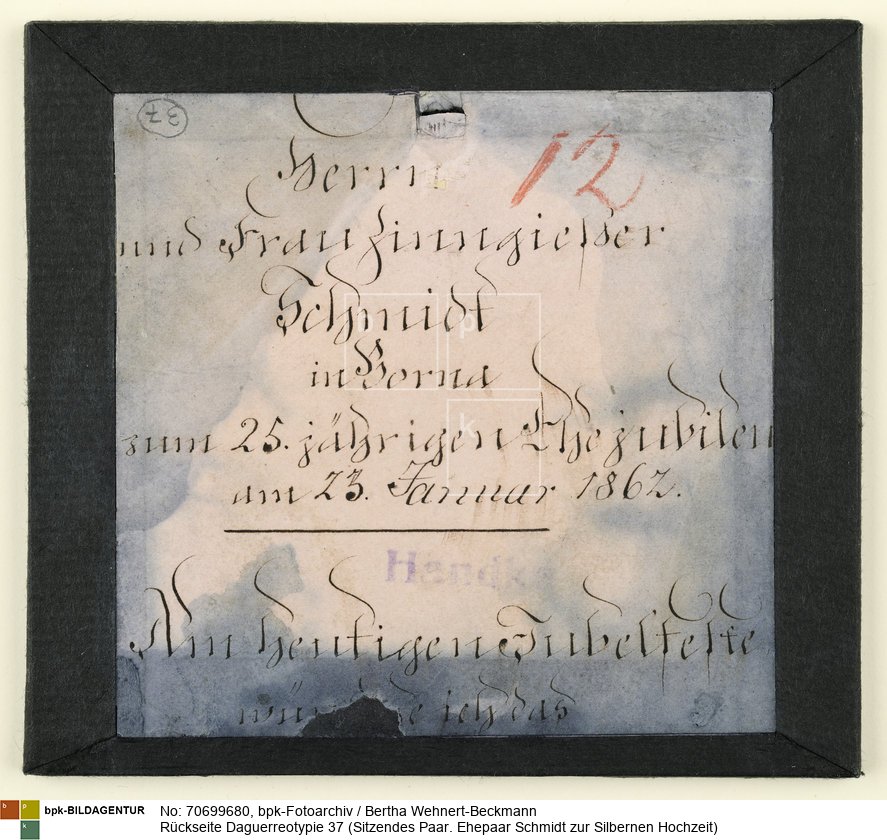 37
12
Herrn
und Frau Zinngießer
Schmidt
in Borna
zum 25. jährigen Ehejubileu
am 23. Januar 1862.
Am heutigen Jubelfeste
ich das
b p k
bpk-BILDAGENTUR
No: 70699680, bpk-Fotoarchiv / Bertha Wehnert-Beckmann
Rückseite Daguerreotypie 37 (Sitzendes Paar. Ehepaar Schmidt zur Silbernen Hochzeit)